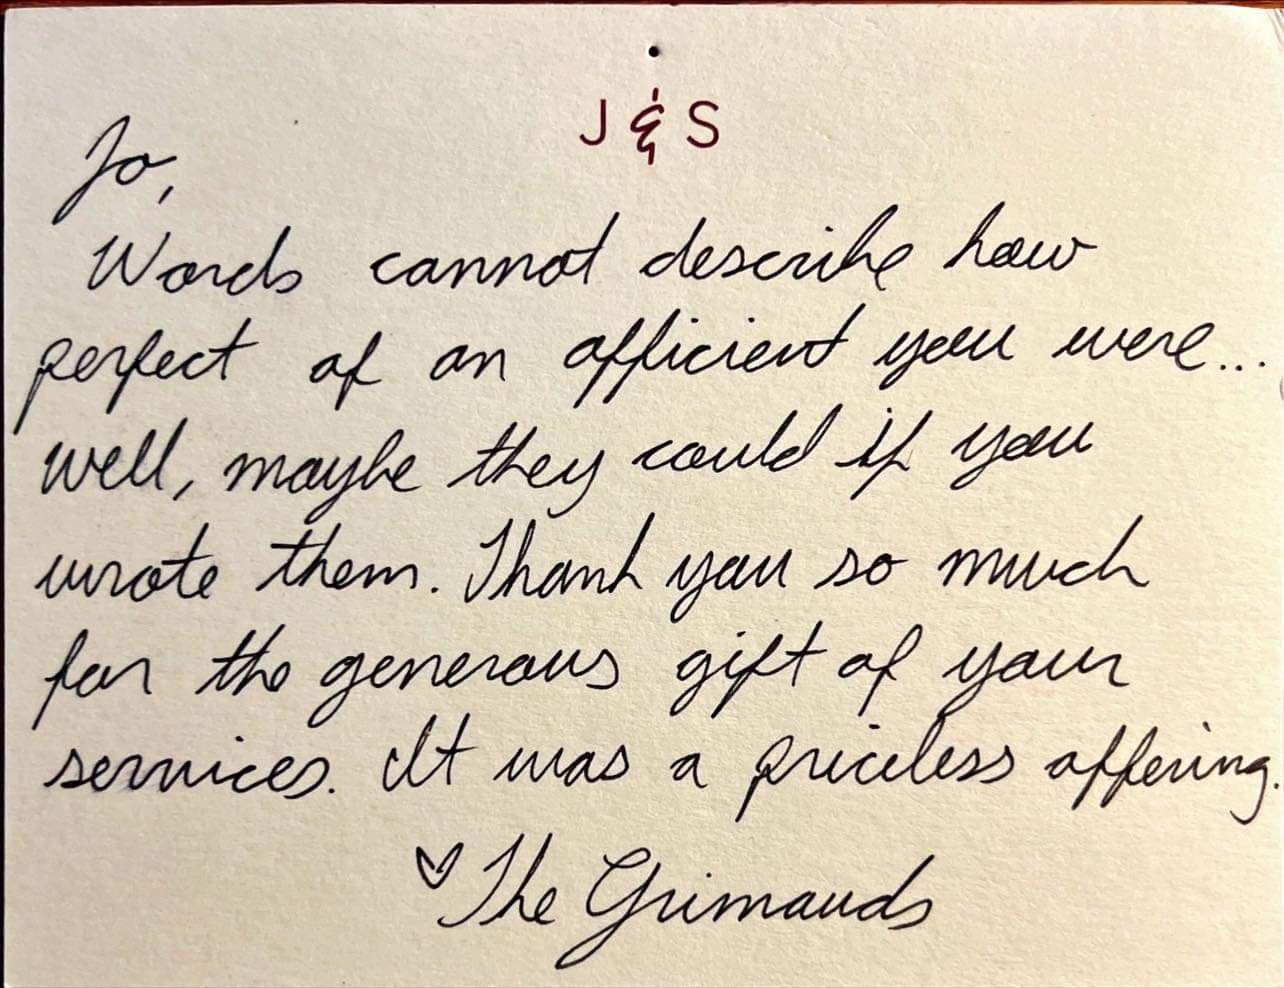 J & S
Jo,
Words cannot describe how
perfect of an officient you were...
well, maybe they could if you
wrote them. Thank you so much
for the generous gift of your
services. It was a priceless offering.
♡ The Grimauds